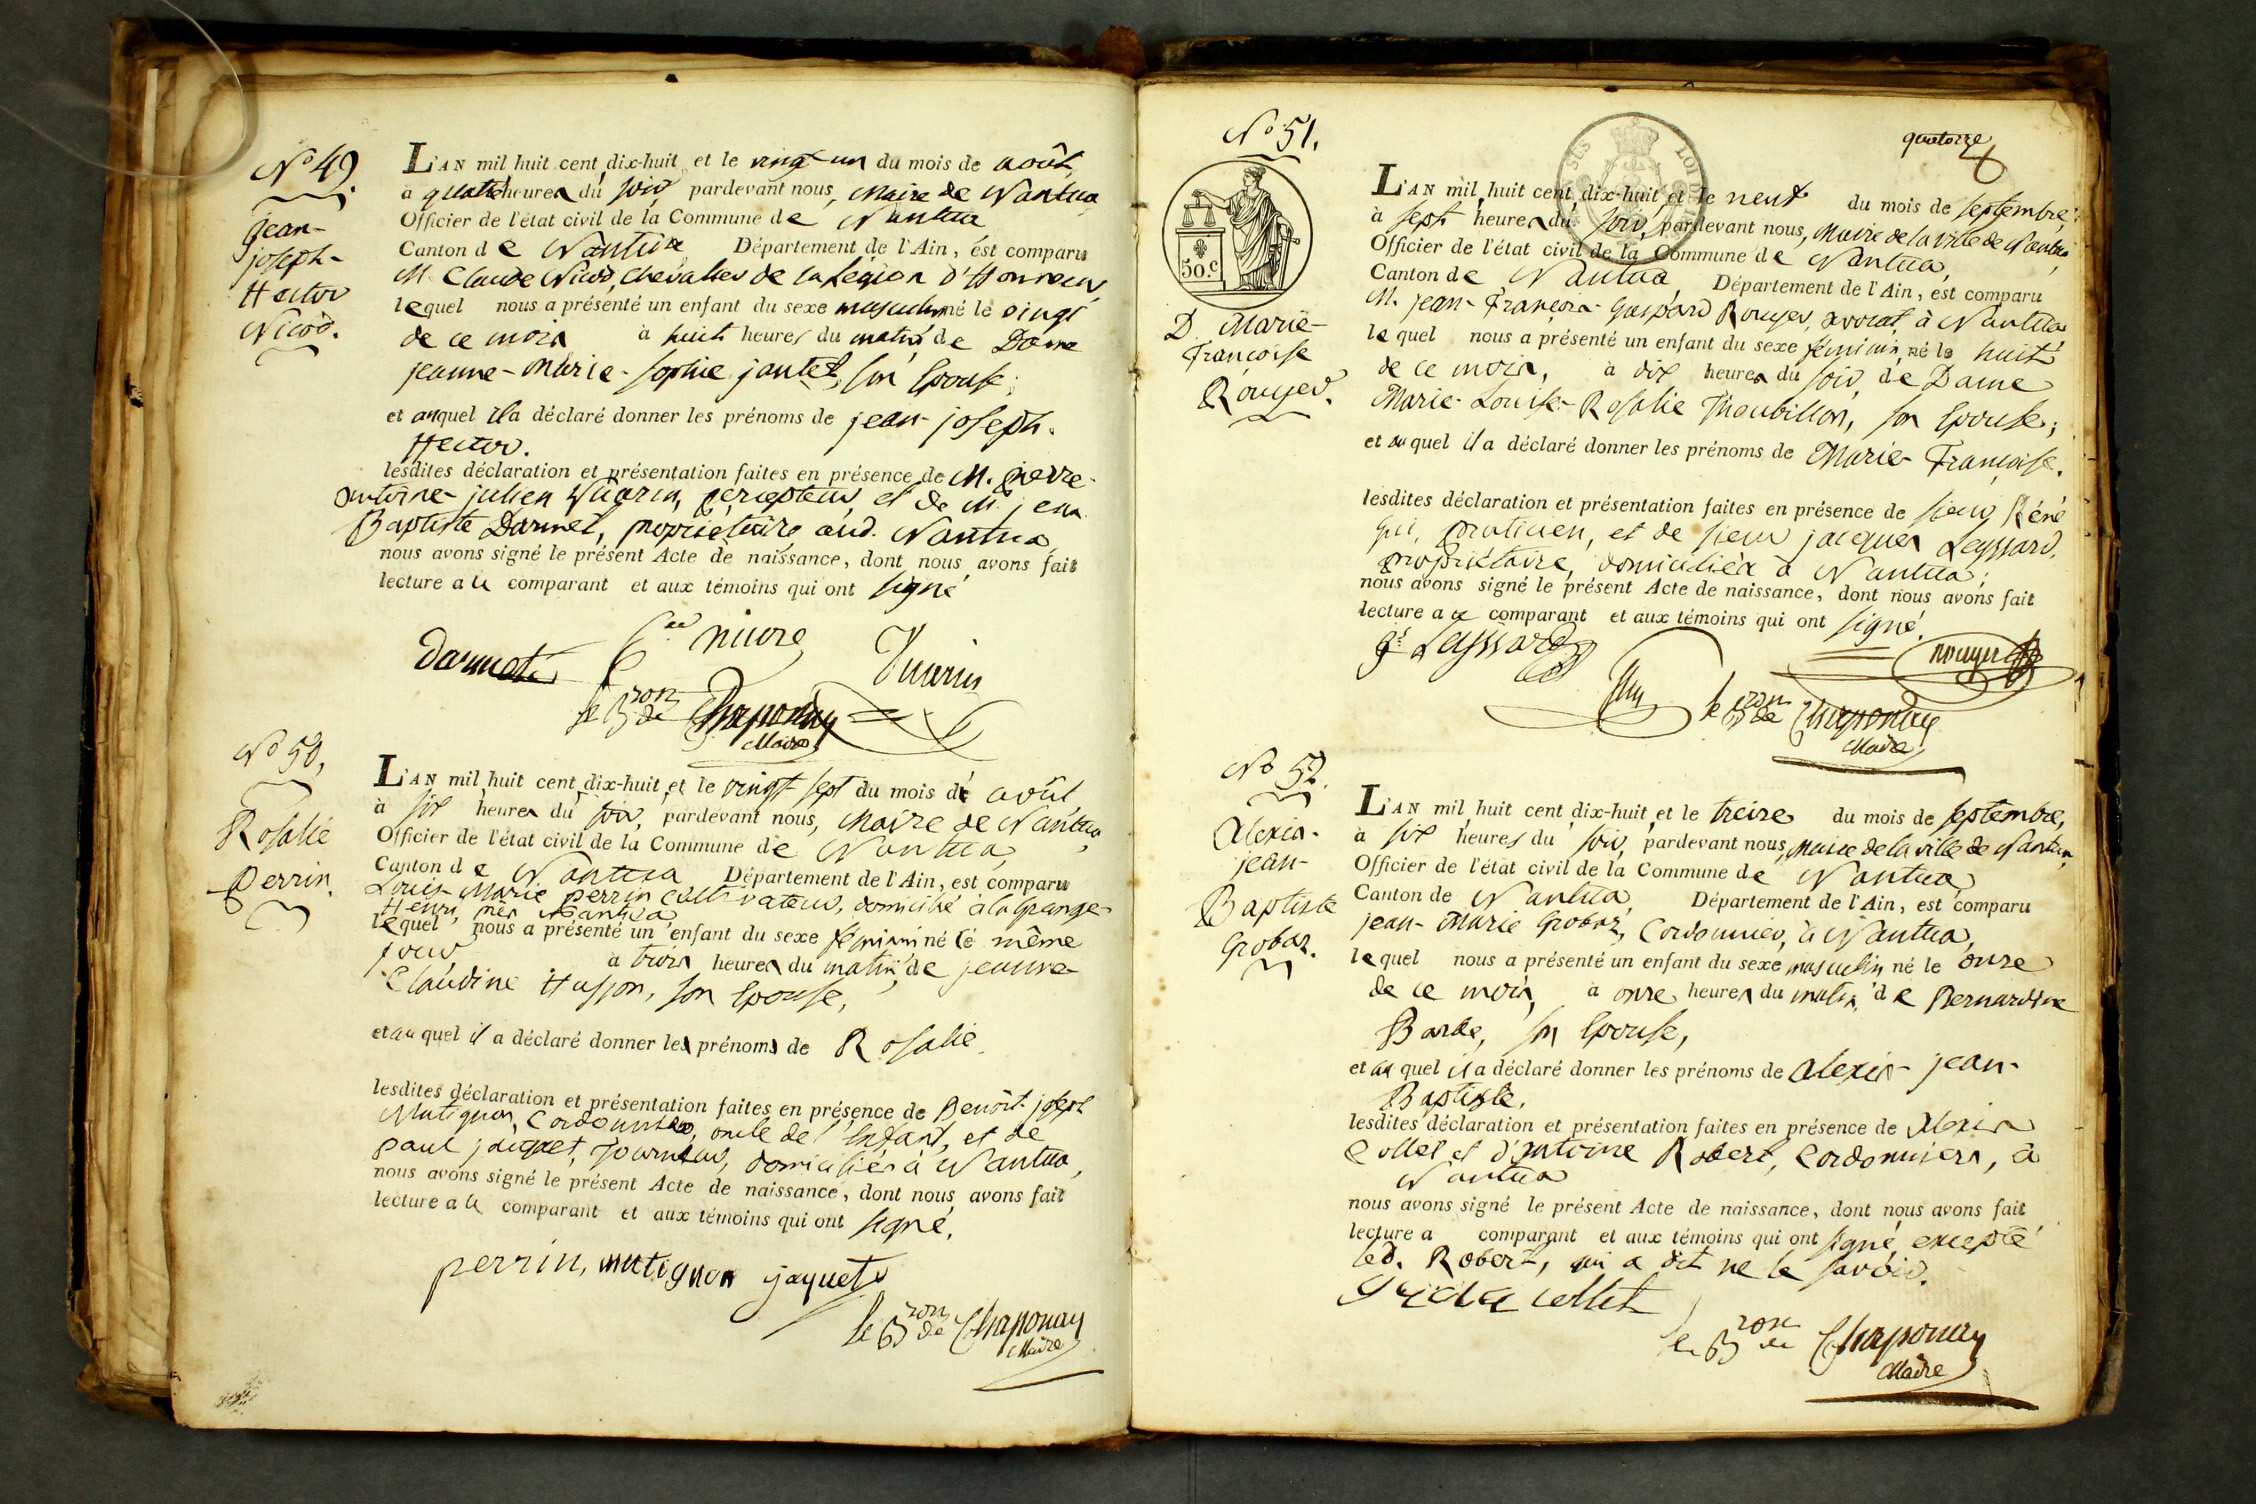 No 49.
jean-
joseph-
Hector
Nicod.
L'AN mil huit cent dix-huit et le vingt-un du mois de août,
à quatre heures du soir pardevant nous, Maire de Nantua
Officier de l'état civil de la Commune de Nantua
Canton de Nantua Département de l'Ain, est comparu
M. Claude Nicod, chevalier de la Légion d'Honneur,
lequel nous a présenté un enfant du sexe masculin né le vingt
de ce mois à huit heures du matin de Dame
jeanne-Marie-Sophie jantet, son Epouse;
et auquel il a déclaré donner les prénoms de jean-joseph-
Hector.
lesdites déclaration et présentation faites en présence de M. pierre-
antoine-julien Vuarin, percepteur et de M. jean
Baptiste Darmet, propriétaire aud. Nantua
nous avons signé le présent Acte de naissance, dont nous avons fait
lecture au comparant et aux témoins qui ont signé
Vuarin
le Bron de Chaponay
Maire
No 50,
Rosalie
Perrin.
L'AN mil huit cent dix-huit et le vingt sept du mois de août,
à six heures du soir, pardevant nous, Maire de Nantua,
Officier de l'état civil de la Commune de Nantua,
Canton de Nantua Département de l'Ain, est comparu
Louis-Marie perrin cultivateur, domicilié à la Grange-
Henri, près Nantua
lequel nous a présenté un enfant du sexe féminin né le même
jour à trois heures du matin, de jeanne-
Claudine Husson, son Epouse,
et auquel il a déclaré donner les prénoms de Rosalie.
lesdites déclaration et présentation faites en présence de Benoît-joseph
Mutignon, Cordonnier, oncle de l'Enfant, et de
paul jaquet, Tourneur, domiciliés à Nantua,
nous avons signé le présent Acte de naissance, dont nous avons fait
lecture au comparant et aux témoins qui ont signé.
perrin, mutignon jaquet
le Bron de Chaponay
Maire
quatorze
No 51.
50.c
D. Marie-
Françoise
Rouyer.
L'AN mil huit cent dix-huit et le neuf du mois de septembre,
à sept heures du soir, pardevant nous, Maire de la ville de Nantua,
Officier de l'état civil de la Commune de Nantua,
Canton de Nantua, Département de l'Ain, est comparu
M. jean-François-Gaspard Rouyer, avocat, à Nantua
lequel nous a présenté un enfant du sexe féminin, né le huit
de ce mois, à dix heures du soir, de Dame
Marie-Louise-Rosalie Thoubillon, son Epouse;
et auquel il a déclaré donner les prénoms de Marie-Françoise.
lesdites déclaration et présentation faites en présence de sieur Réné
praticien, et de sieur jacques Leyssard,
propriétaire, domiciliés à Nantua;
nous avons signé le présent Acte de naissance, dont nous avons fait
lecture au comparant et aux témoins qui ont signé.
Leyssard
rouyer
le Bron de Chaponay
Maire
No 52.
Alexis-
jean-
Baptiste
Grobaz.
L'AN mil huit cent dix-huit et le treize du mois de septembre,
à six heures du soir, pardevant nous, Maire de la ville de Nantua,
Officier de l'état civil de la Commune de Nantua,
Canton de Nantua, Département de l'Ain, est comparu
jean-Marie Grobaz, Cordonnier, à Nantua,
lequel nous a présenté un enfant du sexe masculin né le onze
de ce mois, à onze heures du matin, de Bernardine
Barde, son Epouse,
et auquel il a déclaré donner les prénoms de alexis-jean-
Baptiste.
lesdites déclaration et présentation faites en présence de Alexis
Collet et d'Antoine Robert, Cordonniers, à
Nantua
nous avons signé le présent Acte de naissance, dont nous avons fait
lecture a comparant et aux témoins qui ont signé, excepté
led. Robert, qui a dit ne le savoir.
collet
le Bron de Chaponay
Maire